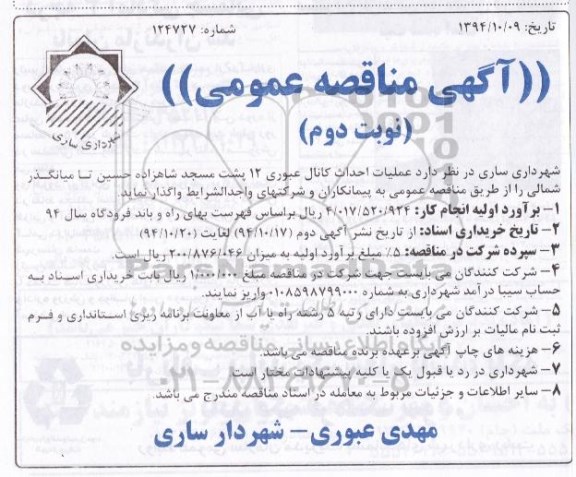 تاریخ: ۱۳۹۴/۱۰/۰۹
شماره: ۱۲۴۷۲۷
((آگهی مناقصه عمومی))
(نوبت دوم)
شهرداری ساری
شهرداری ساری در نظر دارد عملیات احداث کانال عبوری ۱۲ پشت مسجد شاهزاده حسین تا میانگذر
شمالی را از طریق مناقصه عمومی به پیمانکاران و شرکتهای واجدالشرایط واگذار نماید
۱- برآورد اولیه انجام کار: ۴/۰۱۷/۵۲۰/۹۲۴ ریال براساس فهرست بهای راه و باند فرودگاه سال ۹۴
۲- تاریخ خریداری اسناد: از تاریخ نشر آگهی دوم (۹۴/۱۰/۱۷) لغایت (۹۴/۱۰/۲۰)
۳- سپرده شرکت در مناقصه: ۵٪ مبلغ برآورد اولیه به میزان ۲۰۰/۸۷۶/۰۴۶ ریال است.
۴- شرکت کنندگان می بایست جهت شرکت در مناقصه مبلغ ۱/۰۰۰/۰۰۰ ریال بابت خریداری اسناد به
حساب سیبا درآمد شهرداری به شماره ۰۱۰۸۵۹۸۷۹۹۰۰۰ واریز نمایند.
۵- شرکت کنندگان می بایست دارای رتبه ۵ رشته راه یا آب از معاونت برنامه ریزی استانداری و فرم
ثبت نام مالیات بر ارزش افزوده باشند.
۶- هزینه های چاپ آگهی برعهده برنده مناقصه می باشد.
۷- شهرداری در رد یا قبول یک یا کلیه پیشنهادات مختار است.
۸- سایر اطلاعات و جزئیات مربوط به معامله در اسناد مناقصه مندرج می باشد.
مهدی عبوری - شهردار ساری
پایگاه اطلاع رسانی مناقصه و مزایده
۰۲۱-۸۸۳۴۹۶۷۰-۵